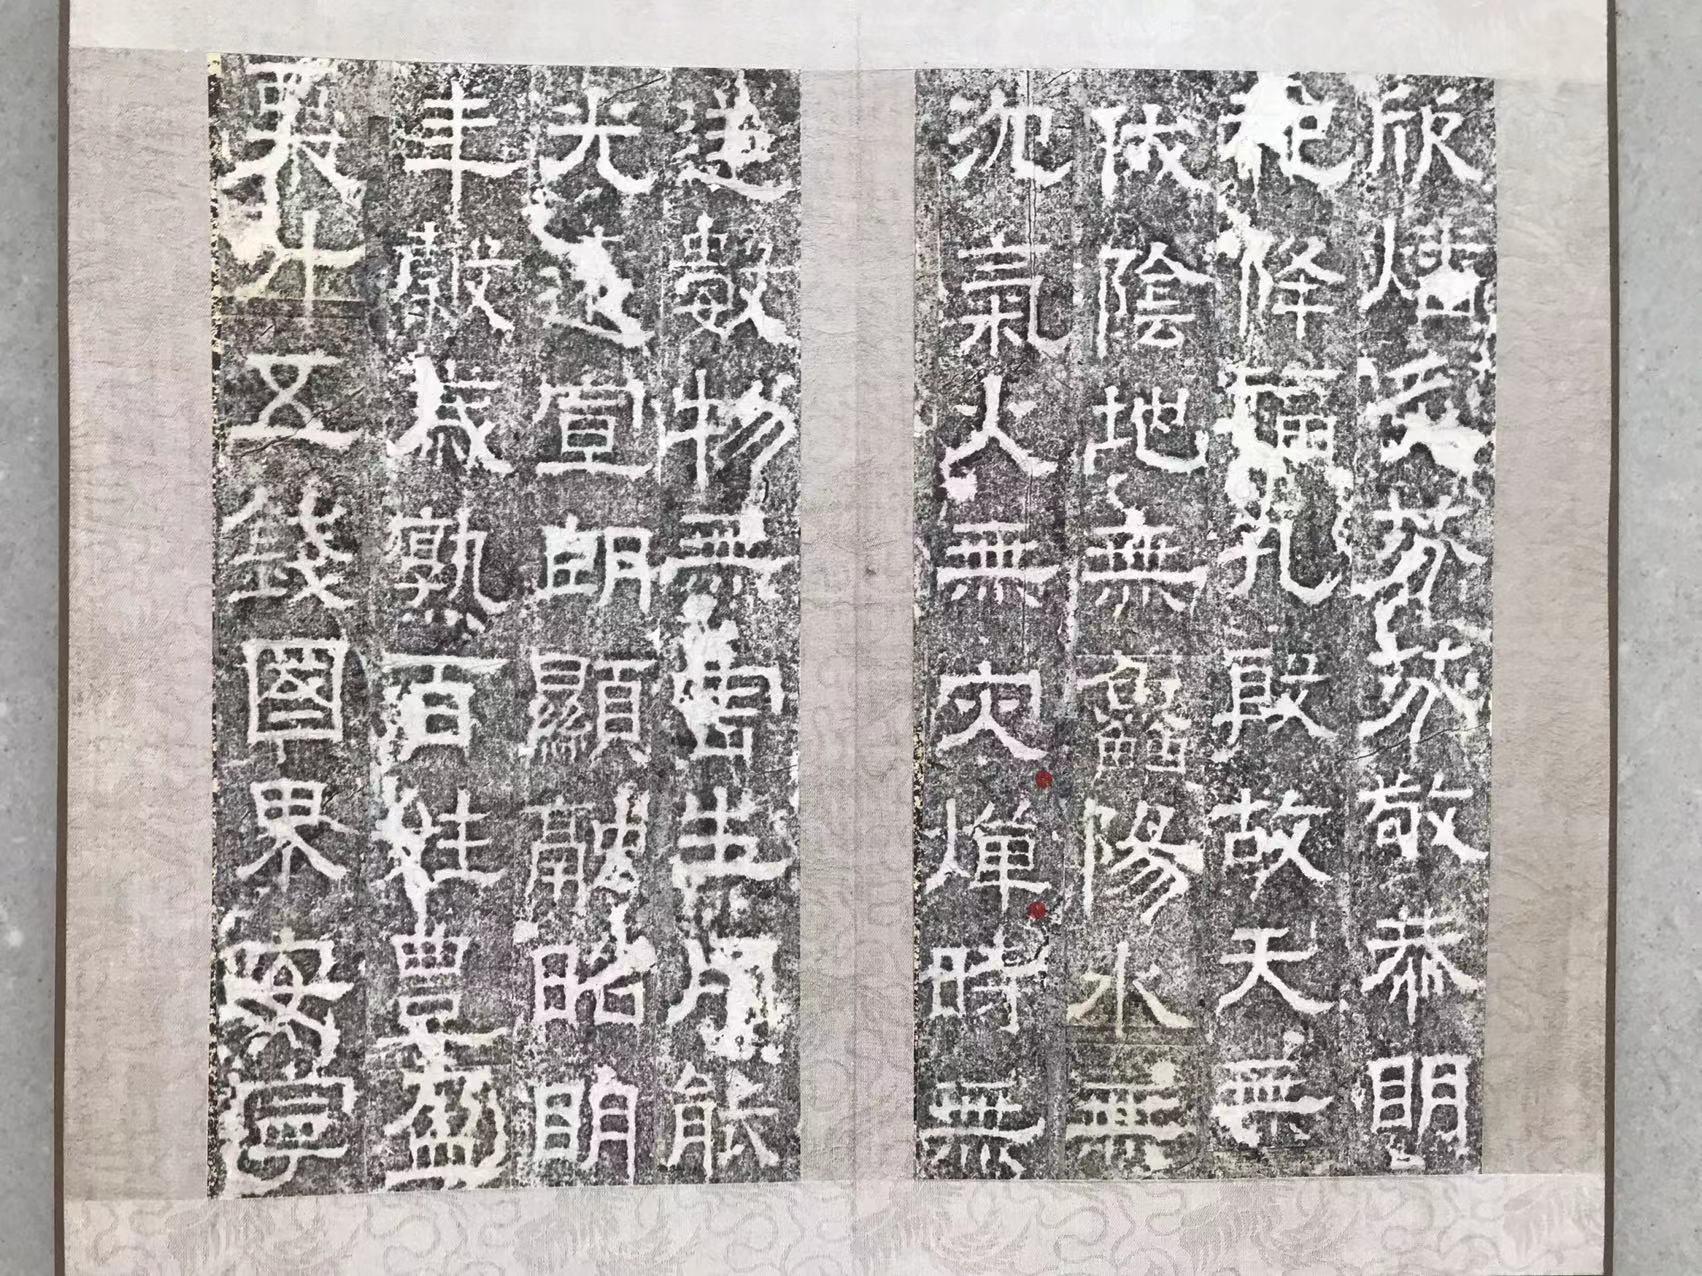 欣燔炙芬芬敬恭明
祀降福孔殷故天無
伏陰地無鱻陽水無
沉氣火無灾燀時無
逆數物無害生用能
光遠宣朗顯融昭明
年穀歲熟百姓豐盈
粟升五錢國界安寧